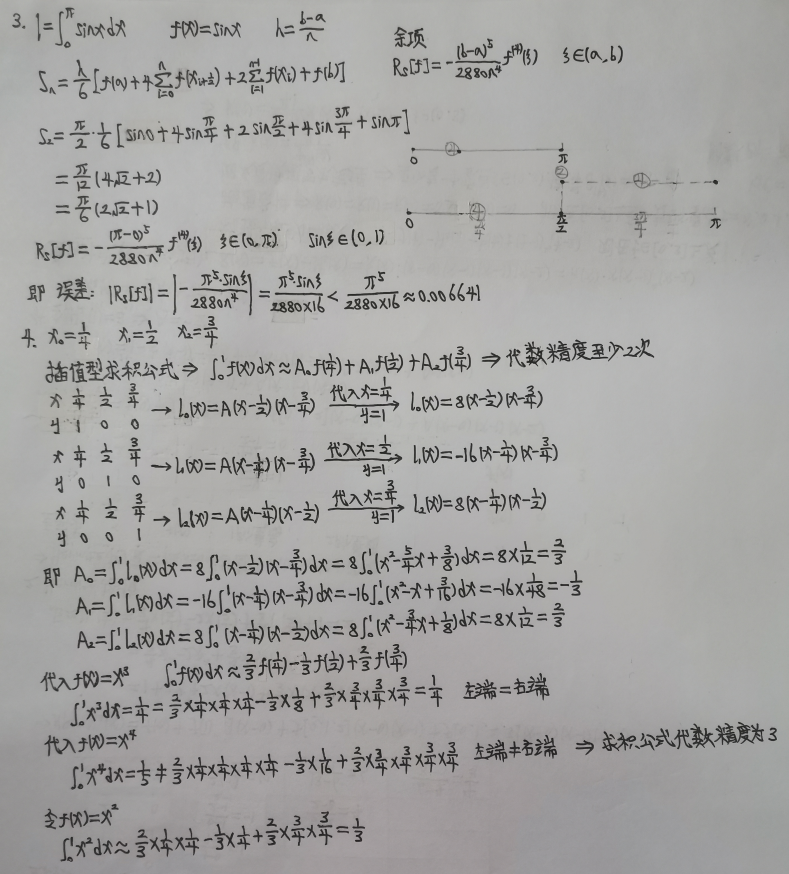 3. I=∫₀^π sinxdx f(x)=sinx h=(b-a)/n
余项
Rs[f]=-(b-a)⁵/2880n⁴ f⁽⁴⁾(ξ) ξ∈(a,b)
Sn=h/6[f(a)+4∑_{i=0}^{n}f(x_{i+1/2})+2∑_{i=1}^{n-1}f(xi)+f(b)]
S₂=π/2·1/6[sin0+4sinπ/4+2sinπ/2+4sin3π/4+sinπ]
=π/12(4√2+2)
=π/6(2√2+1)
0 π
②
④
④
0 π/4 π/2 π
Rs[f]=-(π-0)⁵/2880n⁴ f⁽⁴⁾(ξ) ξ∈(0,π) sinξ∈(0,1)
即 误差: |Rs[f]|=|-π⁵·sinξ/2880n⁴|=π⁵·sinξ/2880×16<π⁵/2880×16≈0.006641
4. x₀=1/4 x₁=1/2 x₂=3/4
插值型求积公式⇒∫₀¹f(x)dx≈A₀f(1/4)+A₁f(1/2)+A₂f(3/4)⇒代数精度至少2次
x 1/4 1/2 3/4
y 1 0 0
→l₀(x)=A(x-1/2)(x-3/4) 代入x=1/4 y=1 → l₀(x)=8(x-1/2)(x-3/4)
x 1/4 1/2 3/4
y 0 1 0
→l₁(x)=A(x-1/4)(x-3/4) 代入x=1/2 y=1 → l₁(x)=-16(x-1/4)(x-3/4)
x 1/4 1/2 3/4
y 0 0 1
→l₂(x)=A(x-1/4)(x-1/2) 代入x=3/4 y=1 → l₂(x)=8(x-1/4)(x-1/2)
即 A₀=∫₀¹l₀(x)dx=8∫₀¹(x-1/2)(x-3/4)dx=8∫₀¹(x²-5/4x+3/8)dx=8×1/12=2/3
A₁=∫₀¹l₁(x)dx=-16∫₀¹(x-1/4)(x-3/4)dx=-16∫₀¹(x²-x+3/16)dx=-16×1/48=-1/3
A₂=∫₀¹l₂(x)dx=8∫₀¹(x-1/4)(x-1/2)dx=8∫₀¹(x²-3/4x+1/8)dx=8×1/12=2/3
代入f(x)=x³ ∫₀¹f(x)dx≈2/3f(1/4)-1/3f(1/2)+2/3f(3/4)
∫₀¹x³dx=1/4=2/3×1/4×1/4×1/4-1/3×1/8+2/3×3/4×3/4×3/4=1/4 左端=右端
代入f(x)=x⁴
∫₀¹x⁴dx=1/5≠2/3×1/4×1/4×1/4×1/4-1/3×1/16+2/3×3/4×3/4×3/4×3/4 左端≠右端 ⇒ 求积公式代数精度为3
令f(x)=x²
∫₀¹x²dx≈2/3×1/4×1/4-1/3×1/4+2/3×3/4×3/4=1/3